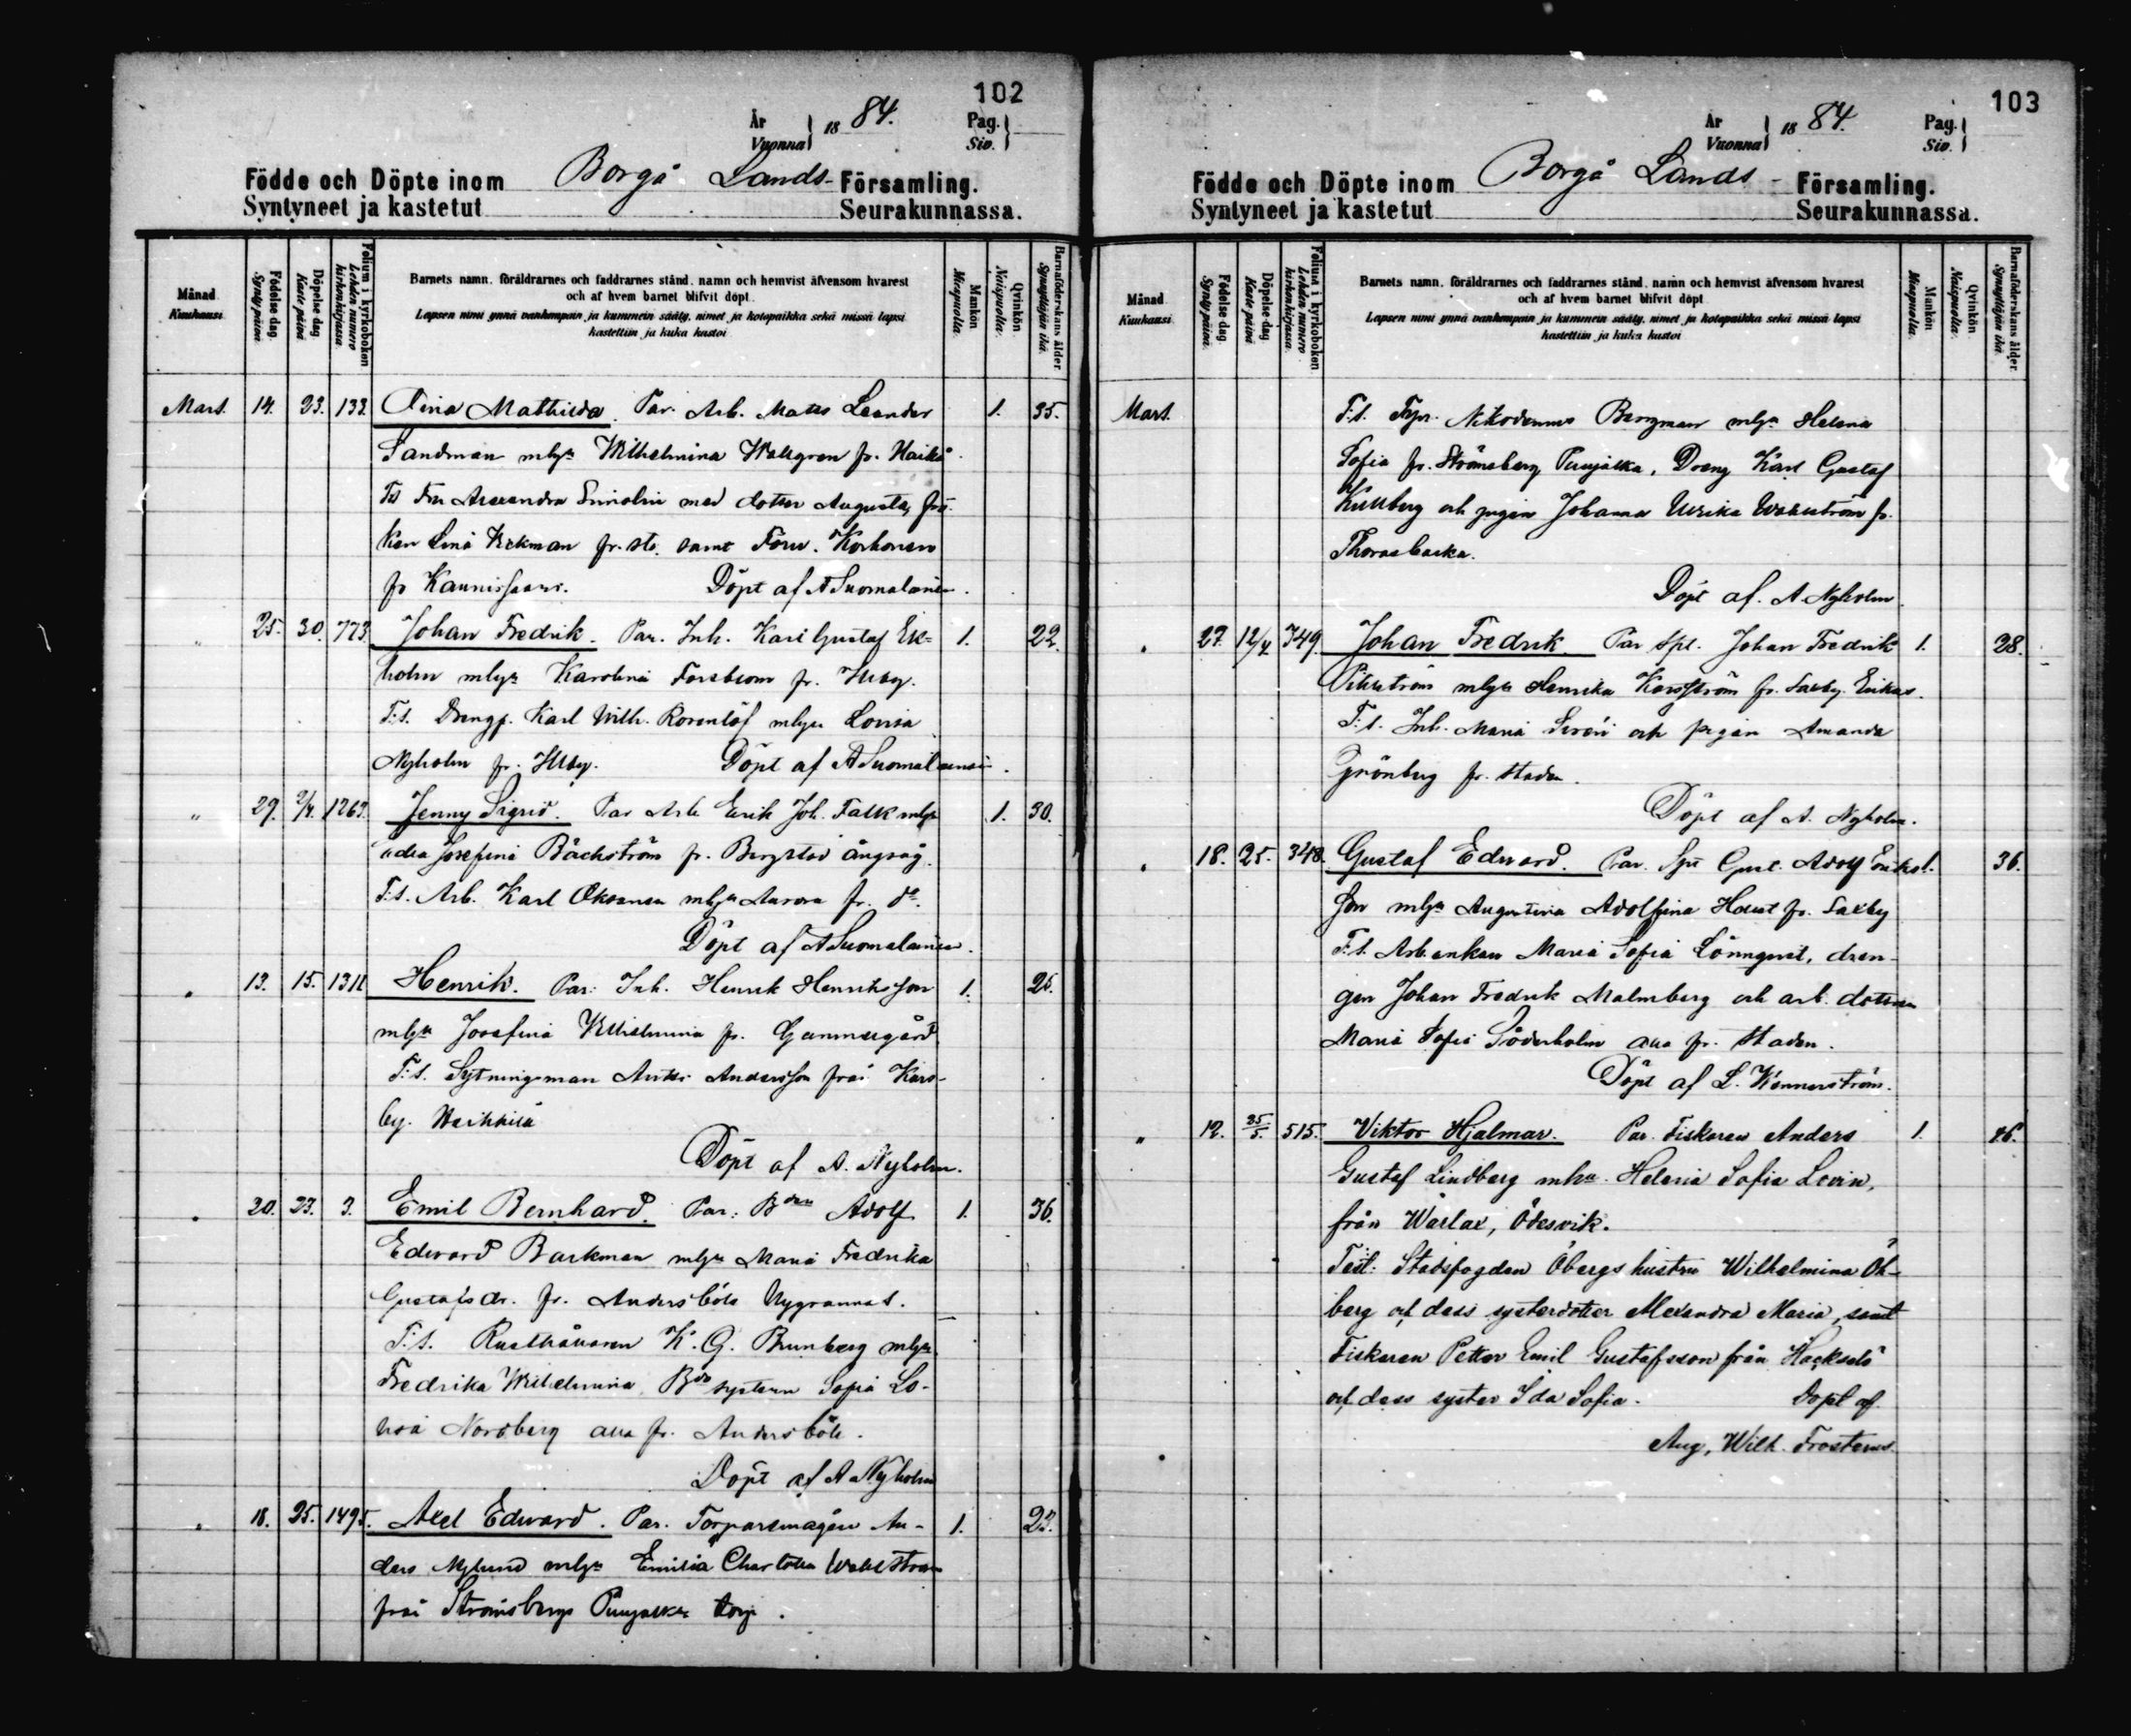 102
År
Vuonna } 18 84. Pag.
Siv. }
Födde och Döpte inom Borgå Lands- Församling.
Syntyneet ja kastetut Seurakunnassa.
Månad
Kuukausi
Födelse dag.
Synty päivä
Döpelse dag
Kaste päivä
Folium i kyrkoboken
Lehden numero kirkonkirjassa
Barnets namn, föräldrarnes och faddrarnes stånd, namn och hemvist äfvensom hvarest
och af hvem barnet blifvit döpt.
Lapsen nimi ynnä vanhempain ja kummein sääty, nimet ja kotopaikka sekä missä lapsi
kastettiin ja kuka kastoi
Mankön
Miespuolta.
Qvinkön
Naispuolta.
Barnaföderskans ålder.
Synnyttäjän ikä.
Mars. 14. 23. 133. Mathilda. Par. Arb. Matts Leander 1. 35.
Sandman mhn Wilhelmina Wallgren fr. Haiko
Ts Fru Alexandra med dotter Augusta, frö-
ken Lina Ekman fr. sts. samt Förv. Korhonen
fr Kaunissaari. Döpt af A Suomalainen.
" 25. 30. 773 Johan Fredrik. Par. Inh. Karl Gustaf Ek= 1. 22.
holm mhn Karolina Forsblom fr. Illby.
T.s. Drengg. Karl Wilh. Rosenlöf mhn Lovisa
Nyholm fr. Illby. Döpt af A Suomalainen.
" 29. 2/4. 1263. Jenny Sigrid. Par Arb Erik Joh. Falk mhn 1. 30.
Josefina Bäckström fr. Bergstad ångsåg.
T.s. Arb. Karl Oksanen mhn Aurora fr. do.
Döpt af A Suomalainen.
" 13. 15. 1311 Henrik. Par: Inh. Henrik Henriksson 1. 25.
mhn Josefina Wilhelmina fr. Gammelgård
T.s. Sytningsman Antti Andersson från Kars-
by. Weikkilä
Döpt af A. Nyholm.
" 20. 23. 3. Emil Bernhard. Par: Bden Adolf 1. 36.
Edvard Backman mhn Maria Fredrika
Gustafsdr. fr. Andersböle Nygrannas.
T.s. Rusthållaren K. G. Brunberg mhn
Fredrika Wilhelmina, Bde systern Sofia Lo-
visa Nordberg alla fr. Andersböle.
Döpt af A Nyholm
" 18. 25. 1495. Axel Edvard. Par. Torparemågen An- 1. 23.
ders Nylund mhn Emilia Charlotta Wahlström
från Strömsbergs Punjalka torp.
103
År
Vuonna } 18 84. Pag.
Siv. }
Födde och Döpte inom Borgå Lands- Församling.
Syntyneet ja kastetut Seurakunnassa.
Månad
Kuukausi
Födelse dag.
Synty päivä.
Döpelse dag
Kaste päivä
Folium i kyrkoboken.
Lehden numero kirkonkirjassa.
Barnets namn, föräldrarnes och faddrarnes stånd, namn och hemvist äfvensom hvarest
och af hvem barnet blifvit döpt
Lapsen nimi ynnä vanhempain ja kummein sääty, nimet ja kotopaikka sekä missä lapsi
kastettiin ja kuka kastoi
Mankön
Miespuolta.
Qvinkön
Naispuolta.
Barnaföderskans ålder.
Synnyttäjän ikä.
Mars. T.s. Torpr. Nikodemus Bergman mhn Helena
Sofia fr. Strömsberg Punjalka, Dreng Karl Gustaf
Kullberg och pigan Johanna Ulrika Wahlström fr.
Thorasbacka.
Döpt af. A. Nyholm.
" 27. 12/4 749. Johan Fredrik. Par Spl. Johan Fredrik 1. 28.
Wikström mhn Henrika Karlström fr. Saxby. Erikas.
T.s. Inh. Maria Sirén och pigan Amanda
Grönberg fr. staden.
Döpt af A. Nyholm.
" 18. 25. 348. Gustaf Edvard. Par. Gust. Adolf Eriks- 1. 36.
son mhn Augustina Adolfina Holst fr. Saxby
T.s. Arb.enkan Maria Sofia Lönnqvist, dren-
gen Johan Fredrik Malmberg och arb. dottern
Maria Sofia Söderholm alla fr. staden.
Döpt af L. Wennerström.
" 12. 25/5. 515. Viktor Hjalmar. Par. Fiskaren Anders 1. 46.
Gustaf Lindberg mhn. Helena Sofia Levin,
från Warlax, Ödesvik.
Test: Stadsfogden Öbergs hustru Wilhelmina Öh-
berg och dess systerdotter Alexandra Maria, samt
Fiskaren Petter Emil Gustafsson från Hacksalö
och dess syster Ida Sofia. Döpt af
Aug, Wilh. Frosterus.